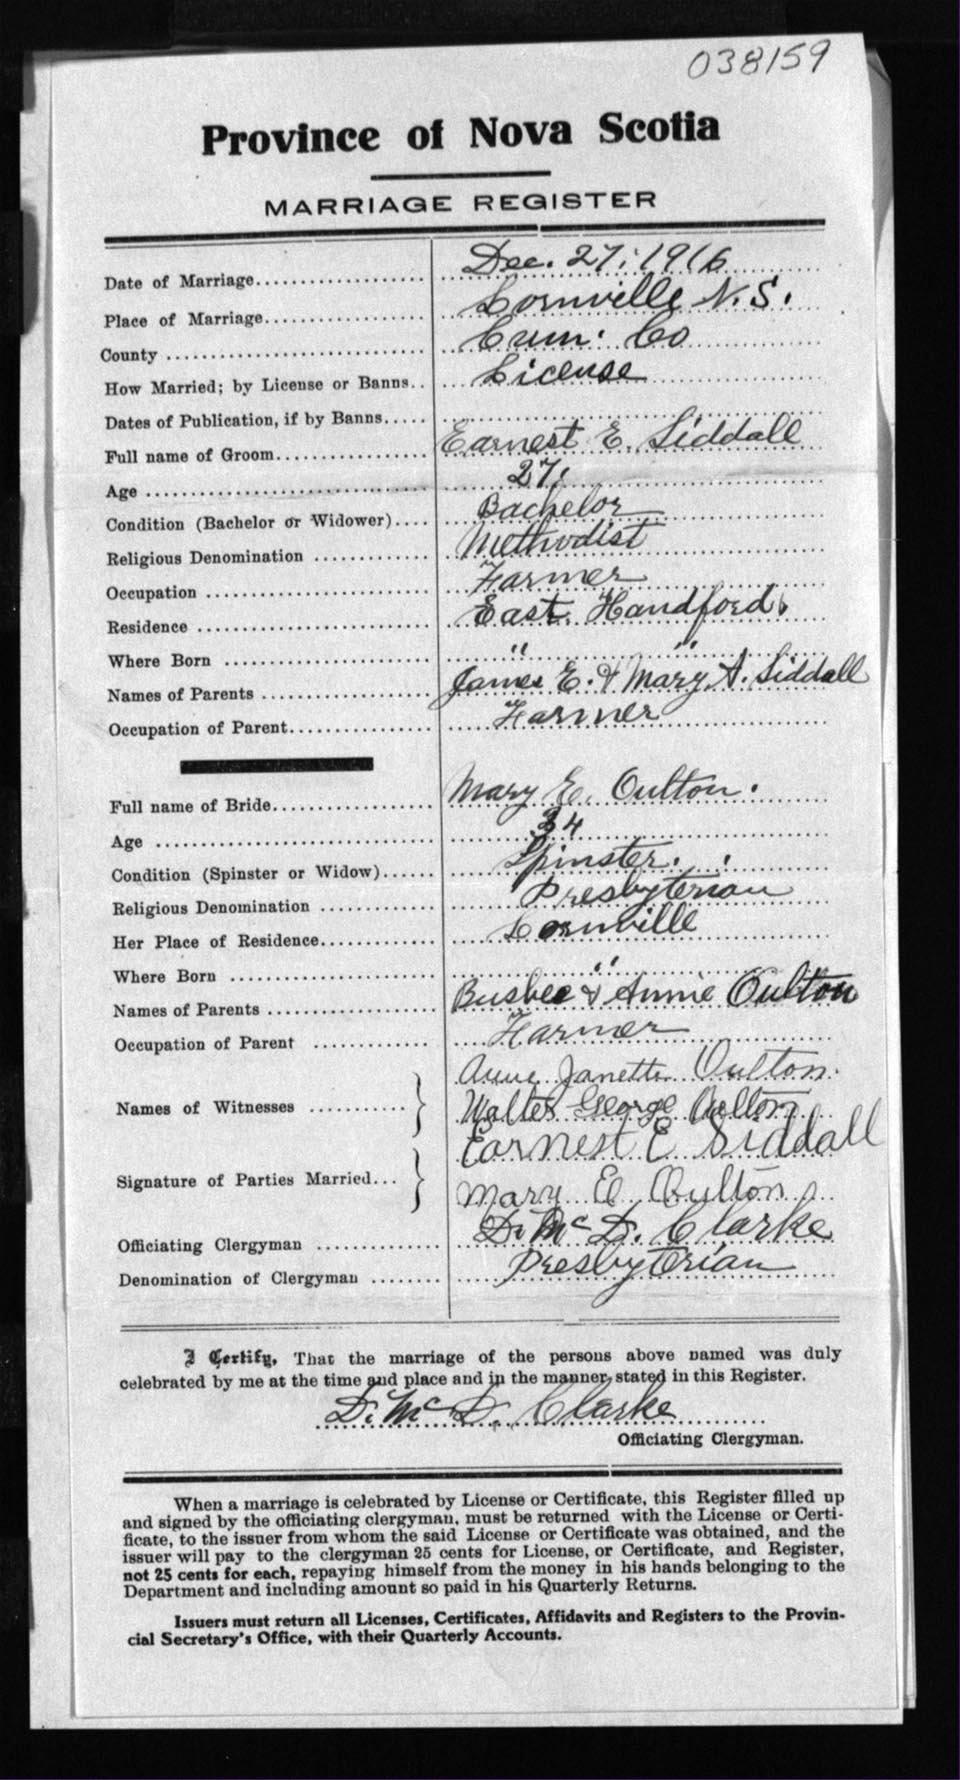 038159
Province of Nova Scotia
MARRIAGE REGISTER
Date of Marriage Dec. 27, 1916
Place of Marriage Lornville N.S.
County Cum. Co
How Married; by License or Banns License
Dates of Publication, if by Banns
Full name of Groom Earnest E. Siddall
Age 27
Condition (Bachelor or Widower) Bachelor
Religious Denomination Methodist
Occupation Farmer
Residence East Handford
Where Born " "
Names of Parents James E. & Mary A. Siddall
Occupation of Parent Farmer
Full name of Bride Mary E. Oulton.
Age 34
Condition (Spinster or Widow) Spinster.
Religious Denomination Presbyterian
Her Place of Residence Lornville
Where Born "
Names of Parents Busbee & Annie Oulton
Occupation of Parent Farmer
Names of Witnesses Janetta Oulton.
Walter George Oulton
Signature of Parties Married Earnest E Siddall
Mary E Oulton
Officiating Clergyman D. McD. Clarke
Denomination of Clergyman Presbyterian
I Certify, That the marriage of the persons above named was duly
celebrated by me at the time and place and in the manner stated in this Register.
D. McD. Clarke
Officiating Clergyman.
When a marriage is celebrated by License or Certificate, this Register filled up
and signed by the officiating clergyman, must be returned with the License or Certi-
ficate, to the issuer from whom the said License or Certificate was obtained, and the
issuer will pay to the clergyman 25 cents for License, or Certificate, and Register,
not 25 cents for each, repaying himself from the money in his hands belonging to the
Department and including amount so paid in his Quarterly Returns.
Issuers must return all Licenses, Certificates, Affidavits and Registers to the Provin-
cial Secretary's Office, with their Quarterly Accounts.